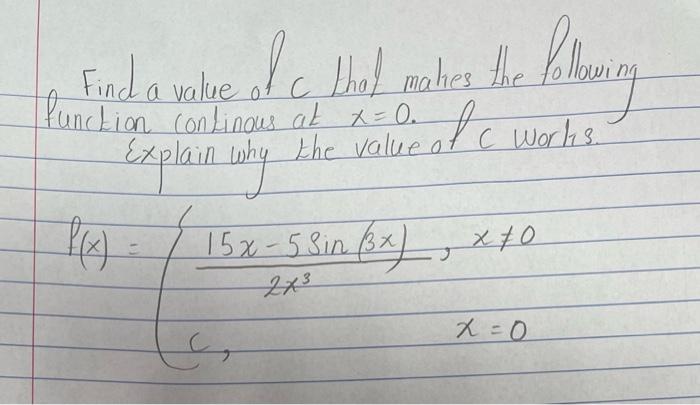 Find a value of c that makes the following
function continous at x=0.
Explain why the value of c works.
f(x) = { 15x - 5 Sin (3x) / 2x³ , x≠0
c, x = 0